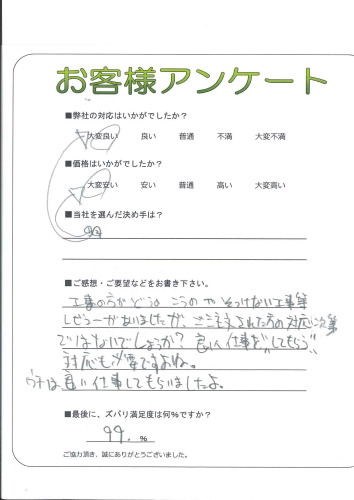 お客様アンケート
■弊社の対応はいかがでしたか？
大変良い 良い 普通 不満 大変不満
■価格はいかがでしたか？
大変安い 安い 普通 高い 大変高い
■当社を選んだ決め手は？
■ご感想・ご要望などをお書き下さい。
工事の方がどうの こうの や そっけない工事等
レビューがありましたが、ご注文された方の対応に次第
ではないでしょうか？ 良い仕事を"してもらう"
対応も必要ですよね。
ウチは良い仕事してもらいましたよ。
■最後に、ズバリ満足度は何%ですか？
99. %
ご協力頂き、誠にありがとうございました。